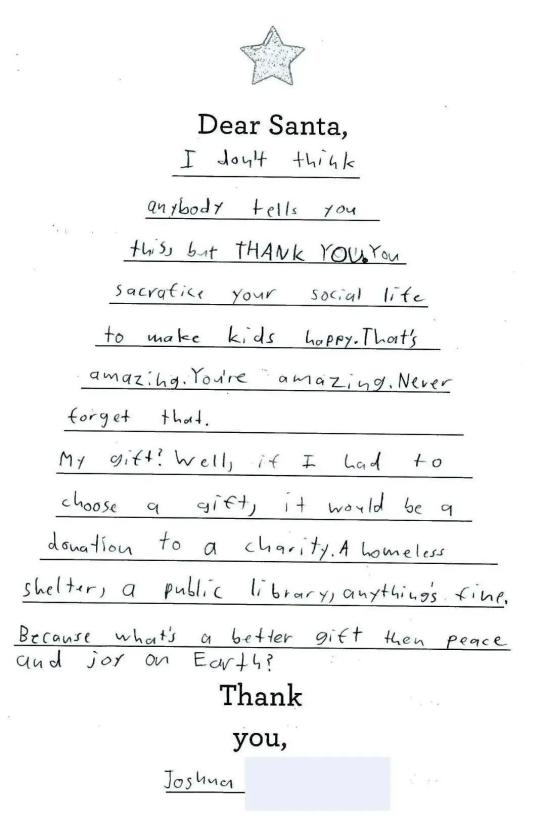 Dear Santa,
I don't think
anybody tells you
this, but THANK YOU. You
sacrafice your social life
to make kids happy. That's
amazing. You're amazing. Never
forget that.
My gift? Well, if I had to
choose a gift, it would be a
donation to a charity. A homeless
shelter, a public library, anything's fine.
Because what's a better gift then peace
and joy on Earth?
Thank
you,
Joshua